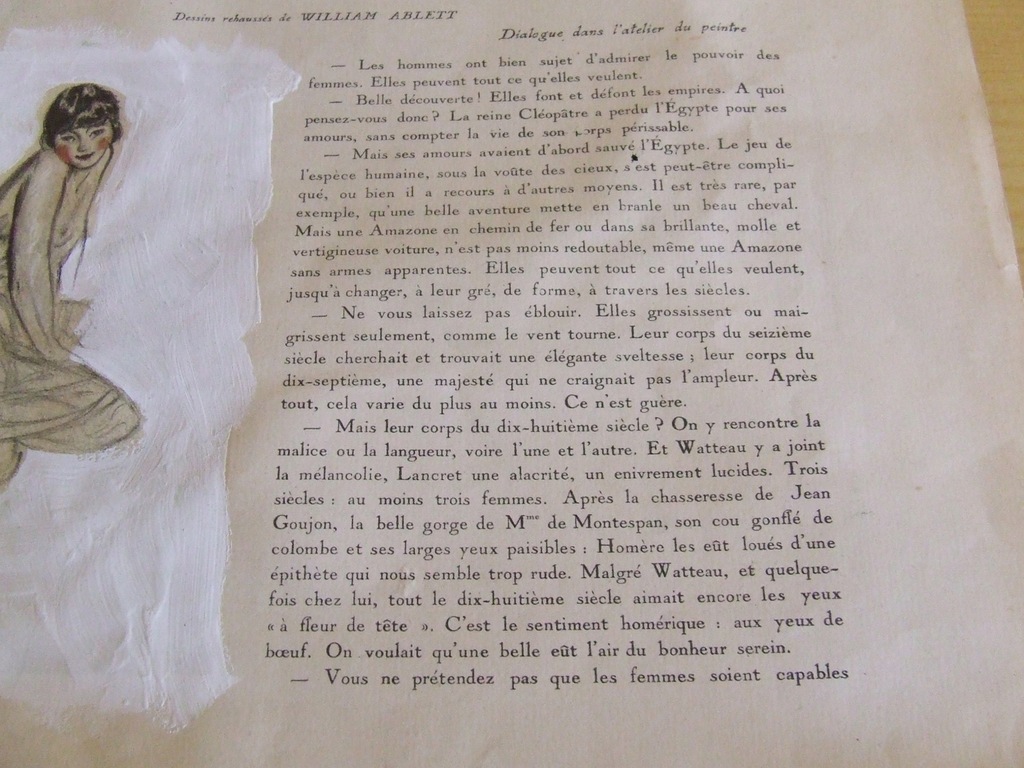 Dessins rehaussés de WILLIAM ABLETT
Dialogue dans l'atelier du peintre
— Les hommes ont bien sujet d'admirer le pouvoir des
femmes. Elles peuvent tout ce qu'elles veulent.
— Belle découverte ! Elles font et défont les empires. A quoi
pensez-vous donc ? La reine Cléopâtre a perdu l'Égypte pour ses
amours, sans compter la vie de son corps périssable.
— Mais ses amours avaient d'abord sauvé l'Égypte. Le jeu de
l'espèce humaine, sous la voûte des cieux, s'est peut-être compli-
qué, ou bien il a recours à d'autres moyens. Il est très rare, par
exemple, qu'une belle aventure mette en branle un beau cheval.
Mais une Amazone en chemin de fer ou dans sa brillante, molle et
vertigineuse voiture, n'est pas moins redoutable, même une Amazone
sans armes apparentes. Elles peuvent tout ce qu'elles veulent,
jusqu'à changer, à leur gré, de forme, à travers les siècles.
— Ne vous laissez pas éblouir. Elles grossissent ou mai-
grissent seulement, comme le vent tourne. Leur corps du seizième
siècle cherchait et trouvait une élégante sveltesse ; leur corps du
dix-septième, une majesté qui ne craignait pas l'ampleur. Après
tout, cela varie du plus au moins. Ce n'est guère.
— Mais leur corps du dix-huitième siècle ? On y rencontre la
malice ou la langueur, voire l'une et l'autre. Et Watteau y a joint
la mélancolie, Lancret une alacrité, un enivrement lucides. Trois
siècles : au moins trois femmes. Après la chasseresse de Jean
Goujon, la belle gorge de Mme de Montespan, son cou gonflé de
colombe et ses larges yeux paisibles : Homère les eût loués d'une
épithète qui nous semble trop rude. Malgré Watteau, et quelque-
fois chez lui, tout le dix-huitième siècle aimait encore les yeux
« à fleur de tête ». C'est le sentiment homérique : aux yeux de
bœuf. On voulait qu'une belle eût l'air du bonheur serein.
— Vous ne prétendez pas que les femmes soient capables